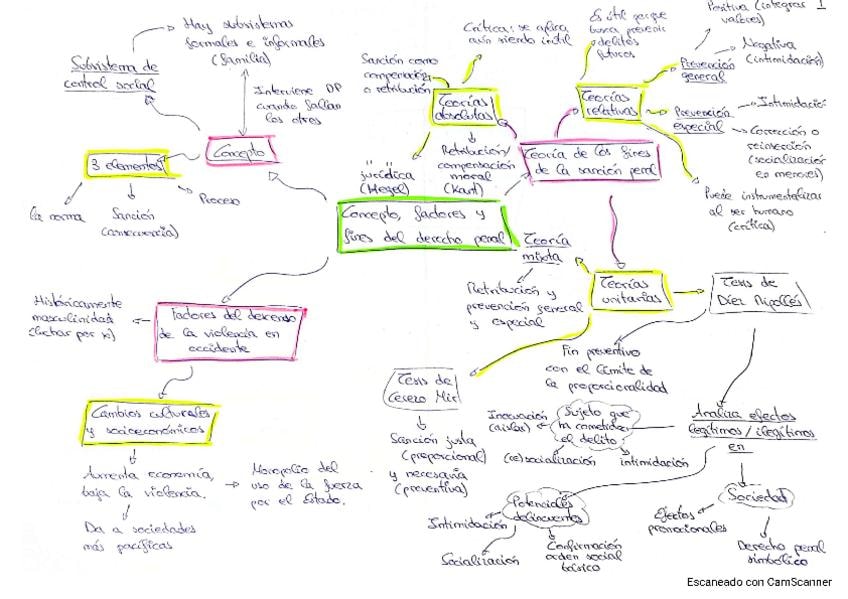 Hay subsistemas
formales e informales
(familia)
Subsistema de
control social
Interviene DP
cuando fallan
los otros
Concepto
3 elementos
la norma
Sanción
(consecuencia)
Proceso
Crítica: se aplica
aún siendo inútil
Sanción como
compensación
o retribución
Teorías
absolutas
jurídica
(Hegel)
Retribución/
compensación
moral
(Kant)
Es útil porque
busca prevenir
delitos
futuros
Teorías
relativas
Positiva (integrar
valores)
Negativa
(intimidación)
Prevención
general
Prevención
especial
Intimidación
Corrección o
reinserción
(socialización
en menores)
Puede instrumentalizar
al ser humano
(crítica)
Teoría de los fines
de la sanción penal
Concepto, factores y
fines del derecho penal
Teoría
mixta
Retribución y
prevención general
y especial
Teorías
unitarias
Tesis de
Díez Ripollés
Fin preventivo
con el límite de
la proporcionalidad
Históricamente
masculinidad
(luchar por x)
Factores del descenso
de la violencia en
occidente
Cambios culturales
y socioeconómicos
Aumenta economía,
baja la violencia.
Monopolio del
uso de la fuerza
por el Estado.
Da a sociedades
más pacíficas
Tesis de
Cerezo Mir
Sanción justa
(proporcional)
y necesaria
(preventiva)
Analiza efectos
legítimos / ilegítimos
en
Sujeto que
ha cometido
el delito
Inocuación
(aislar)
(re)socialización
intimidación
Potenciales
delincuentes
Intimidación
Socialización
Confirmación
orden social
básico
Sociedad
Efectos
promocionales
Derecho penal
simbólico
Escaneado con CamScanner